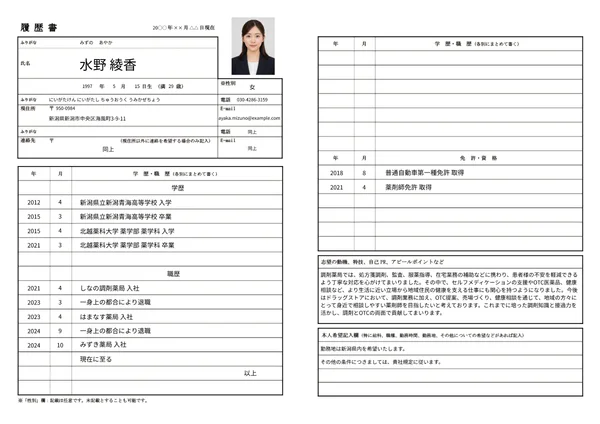 履歴書
20〇〇年××月△△日現在
ふりがな みずの あやか
氏名 水野 綾香
1997 年 5 月 15 日生 (満 29 歳)
※性別 女
ふりがな にいがたけん にいがたし ちゅうおうく うみかぜちょう
電話 050-4286-3159
現住所 〒 950-0984
新潟県新潟市中央区海風町3-9-11
E-mail
ayaka.mizuno@example.com
ふりがな
電話 同上
連絡先 〒 (現住所以外に連絡を希望する場合のみ記入)
同上
E-mail
同上
年 月 学 歴・職 歴 (各別にまとめて書く)
学歴
2012 4 新潟県立新潟青海高等学校 入学
2015 3 新潟県立新潟青海高等学校 卒業
2015 4 北越薬科大学 薬学部 薬学科 入学
2021 3 北越薬科大学 薬学部 薬学科 卒業
職歴
2021 4 しなの調剤薬局 入社
2023 3 一身上の都合により退職
2023 4 はまなす薬局 入社
2024 9 一身上の都合により退職
2024 10 みずき薬局 入社
現在に至る
以上
※「性別」欄:記載は任意です。未記載とすることも可能です。
年 月 学 歴・職 歴 (各別にまとめて書く)
年 月 免 許・資 格
2018 8 普通自動車第一種免許 取得
2021 4 薬剤師免許 取得
志望の動機、特技、自己PR、アピールポイントなど
調剤薬局では、処方箋調剤、監査、服薬指導、在宅業務の補助などに携わり、患者様の不安を軽減できる
よう丁寧な対応を心がけてまいりました。その中で、セルフメディケーションの支援やOTC医薬品、健康
相談など、より生活に近い立場から地域住民の健康を支える仕事にも関心を持つようになりました。今後
はドラッグストアにおいて、調剤業務に加え、OTC提案、売場づくり、健康相談を通じて、地域の方々に
とって身近で相談しやすい薬剤師を目指したいと考えております。これまでに培った調剤知識と接遇力を
活かし、調剤とOTCの両面で貢献してまいります。
本人希望記入欄 (特に給料、職種、勤務時間、勤務地、その他についての希望などがあれば記入)
勤務地は新潟県内を希望いたします。
その他の条件につきましては、貴社規定に従います。